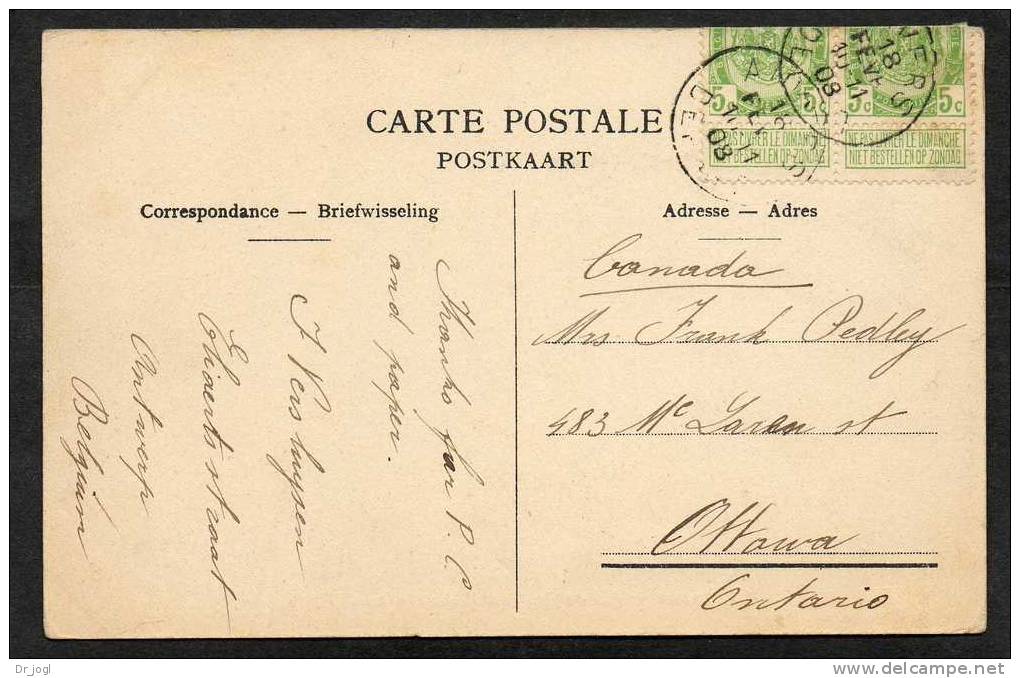 CARTE POSTALE
POSTKAART
Correspondance — Briefwisseling
Adresse — Adres
5c 5c 5c 5c
NE PAS LIVRER LE DIMANCHE
NIET BESTELLEN OP ZONDAG
NE PAS LIVRER LE DIMANCHE
NIET BESTELLEN OP ZONDAG
18
FEVR
11
08
Thanks for P. C.
and paper.
J Vershuysen
straat
Antwerp
Belgium
Canada
Mrs Frank Pedley
483 Mc Laren st
Ottowa
Ontario
Dr jogl
www.delcampe.net